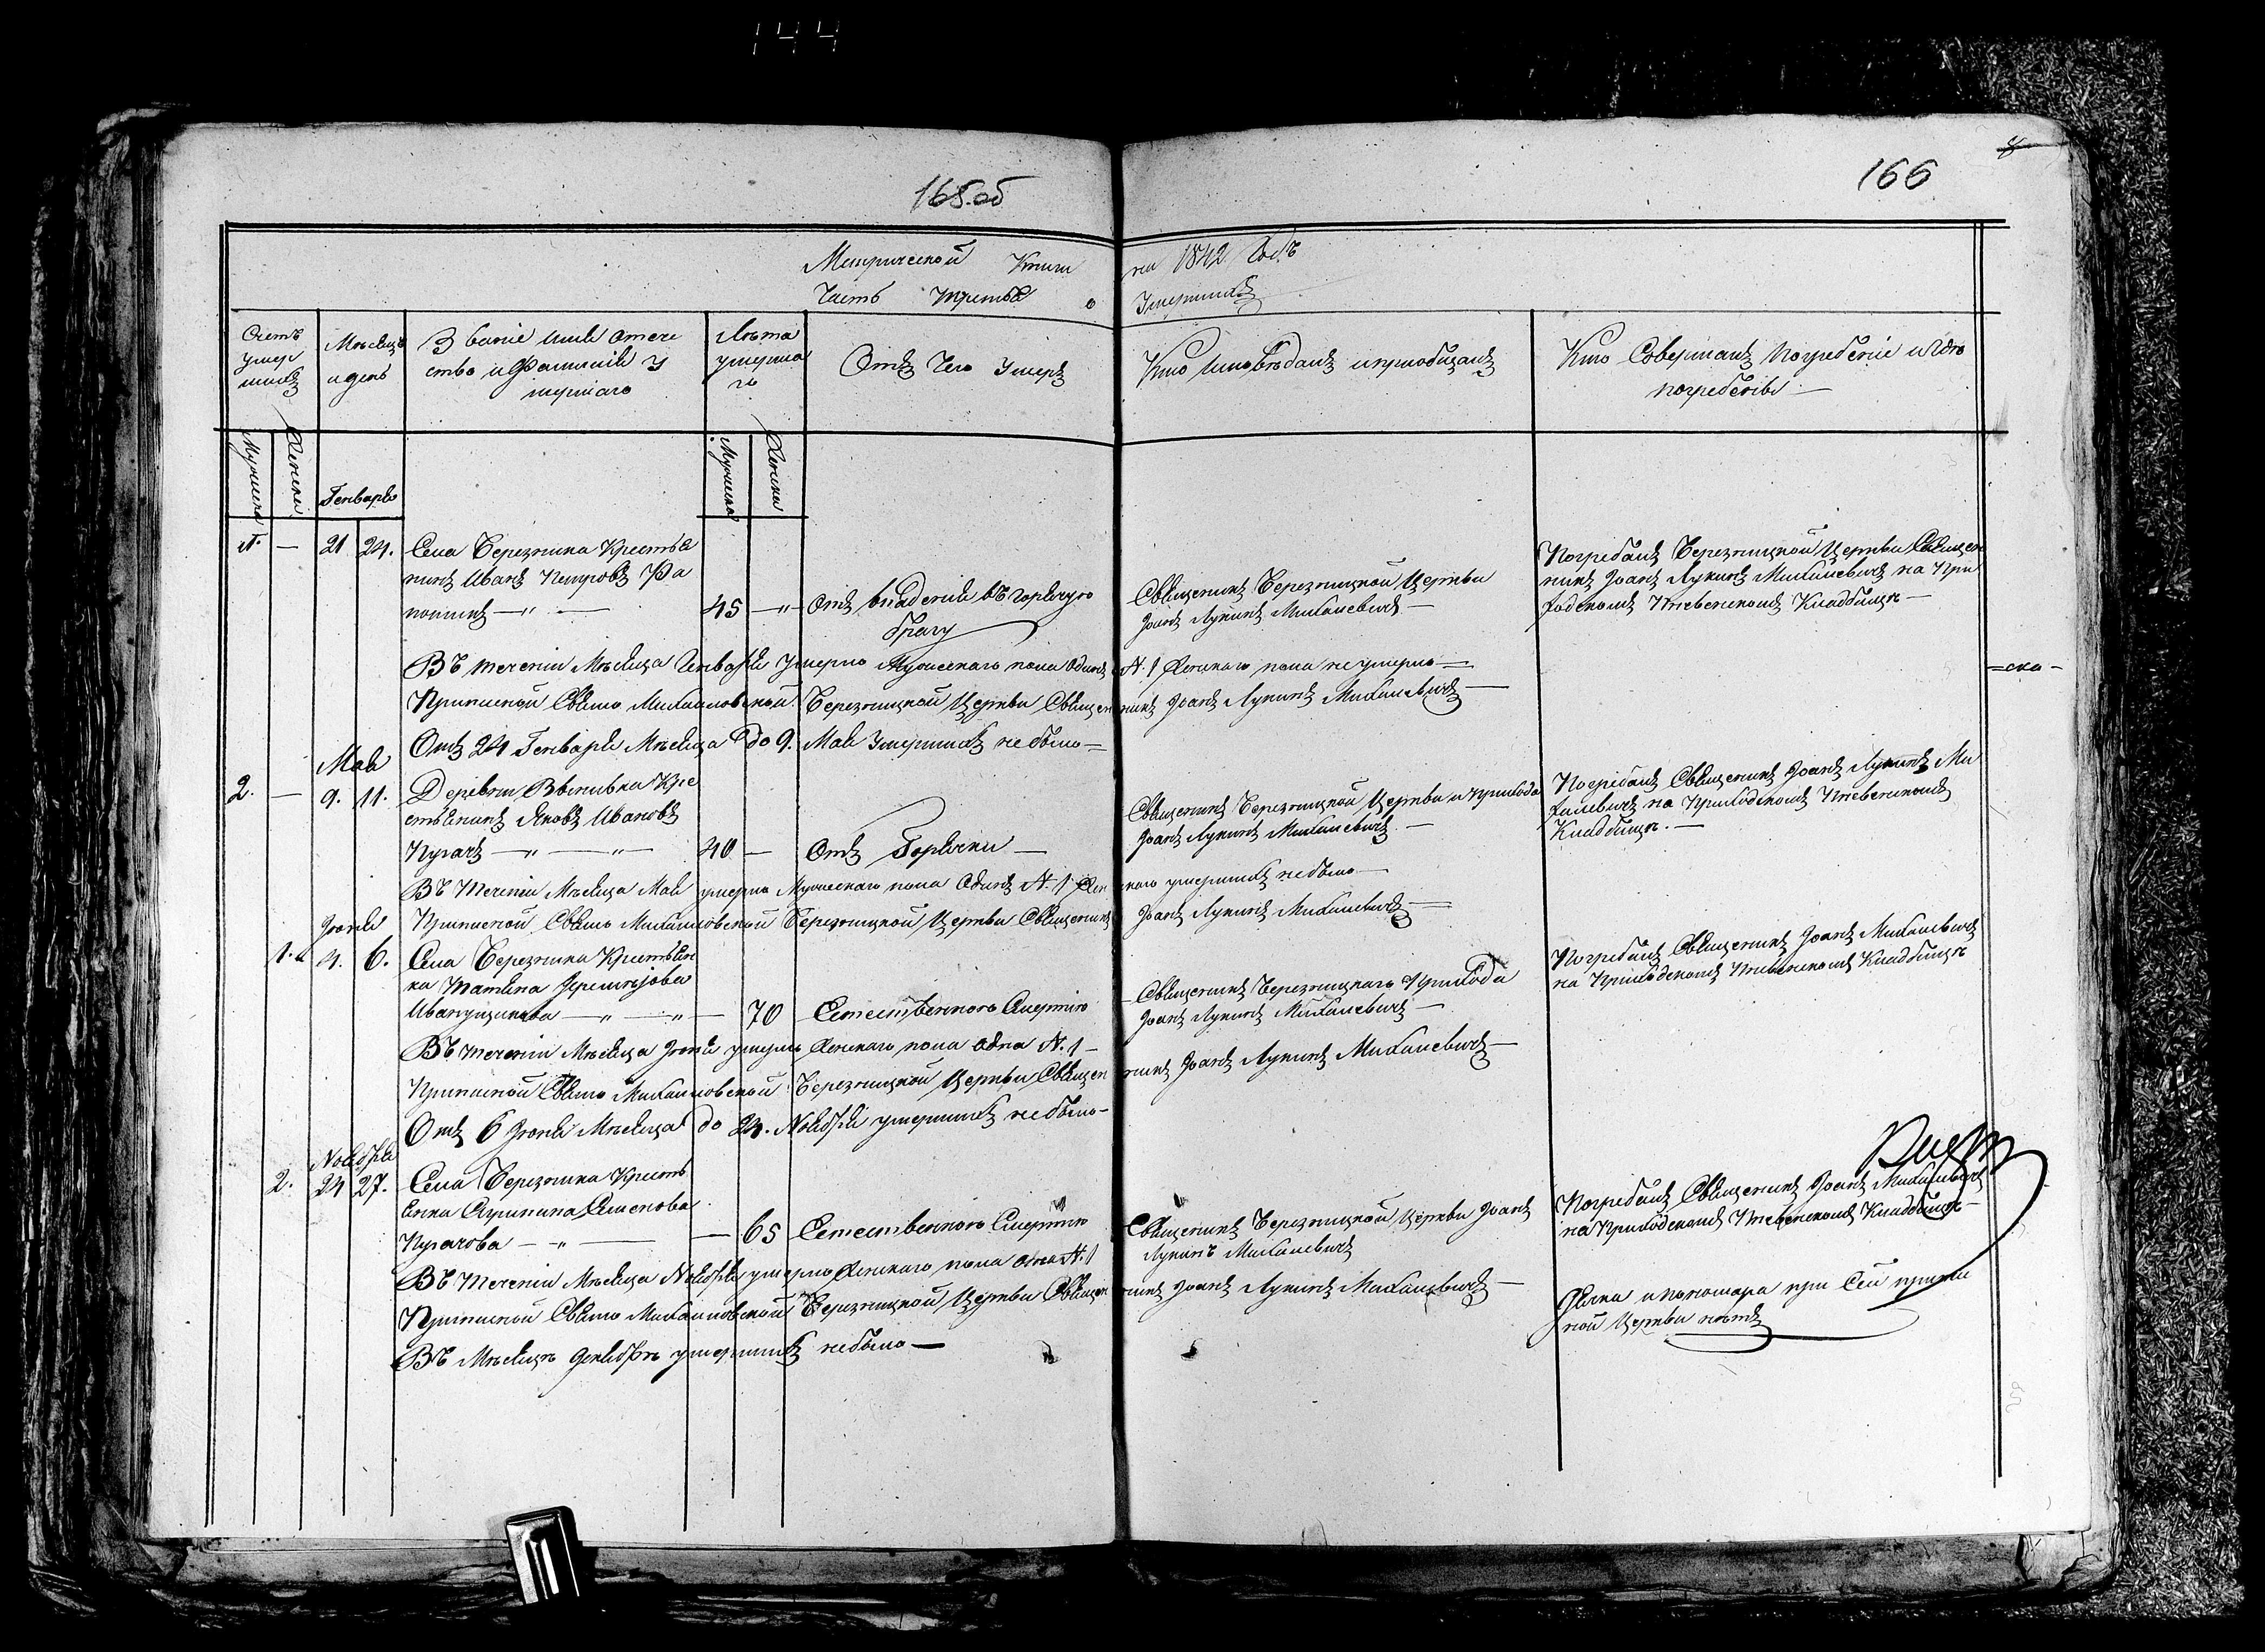 144
165.об
166
Метрической Книги на 1842 Годъ
Часть третья о Умершихъ
Счетъ умершихъ
Мѣсяцъ и день
Званіе имя отечество и Фамилія умершаго
Лѣта умершаго
Отъ Чего Умеръ
Кто исповѣдалъ и приобщалъ
Кто Совершалъ погребеніе и гдѣ погребены
Мужеска
Женска
Генваря
Мужеска
Женска
1. — 21 24. Села Березника Крестья
нинъ Иванъ Петровъ
45 — Отъ впаденія въ горячую
брагу
Священникъ Березницкой Церкви
Іоанъ Лукинъ Михалевичъ —
Погребалъ Березницкой Церкви Священ
никъ Іоанъ Лукинъ Михалевичъ на При
ходскомъ Кладбищѣ —
Въ теченіи Мѣсяца Генваря Умерло Мужескаго пола Одинъ №. 1 Женскаго пола не умерло —
Приписной Свято Михаиловской Березницкой Церкви Священникъ Іоанъ Лукинъ Михалевичъ —
Отъ 24 Генваря Мѣсяца до 9. Мая Умершихъ небыло —
Мая
2. — 9. 11. Деревни Кре
стьянинъ Яковъ Ивановъ
Пугачъ — 40 — Отъ Горячки —
Священникъ Березницкой Церкви и прихода
Іоанъ Лукинъ Михалевичъ. —
Погребалъ Священникъ Іоанъ Лукинъ Ми
халевичъ на Приходскомъ
Кладбищѣ. —
Въ теченіи Мѣсяца Мая умерло Мужескаго пола Одинъ №. 1 Женскаго умершихъ небыло —
Приписной Свято Михаиловской Березницкой Церкви Священникъ Іоанъ Лукинъ Михалевичъ —
Іюня
1. 4. 6. Села Березника Крестьян
ка Татьяна
— 70 Естественною Смертію
Священникъ Березницкаго Прихода
Іоанъ Лукинъ Михалевичъ —
Погребалъ Священникъ Іоанъ Михалевичъ
на Приходскомъ Кладбищѣ
Въ теченіи Мѣсяца Іюня умерло Женскаго пола одна №. 1 —
Приписной Свято Михаиловской Березницкой Церкви Священникъ Іоанъ Лукинъ Михалевичъ —
Отъ 6 Іюня Мѣсяца до 24. Ноября умершихъ небыло —
Ноября
2. 24 27. Села Березника Кресть
янка Семенова
Пугачова — 65 Естественною Смертію
Священникъ Березницкой Церкви Іоанъ
Лукинъ Михалевичъ
Погребалъ Священникъ Іоанъ Михалевичъ
на Приходскомъ Кладбищѣ —
Въ теченіи Мѣсяца Ноября умерло Женскаго пола одна №. 1
Приписной Свято Михаиловской Березницкой Церкви Священникъ Іоанъ Лукинъ Михалевичъ —
Дьяка и пономара при Сей припис
ной Церкви нѣтъ
Въ Мѣсяцѣ Декабрѣ умершихъ небыло —